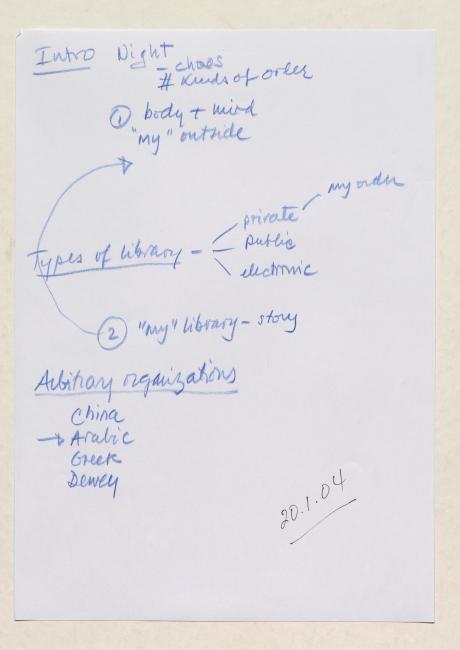 Intro Night
- chaos
# kinds of order
① body + mind
"my" outside
my order
Types of library - private
public
electronic
② "my" library - story
Arbitrary organizations
China
→ Arabic
Greek
Dewey
20.1.04